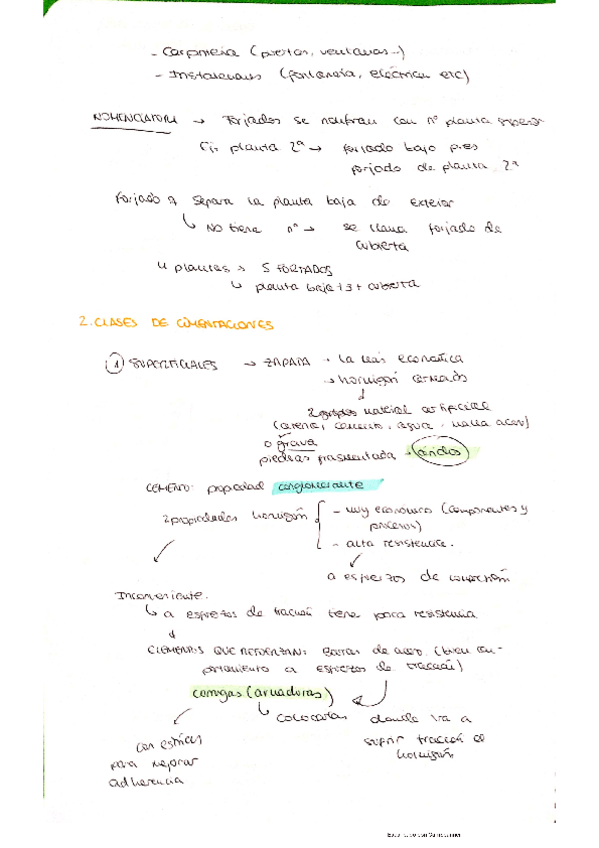 - Carpinteria (puertas, ventanas...)
- Instalaciones (fontanería, eléctrica etc)
NOMENCLATURA → Forjados se nombran con nº planta superior
Ej: planta 2ª → forjado bajo pies
forjado de planta 2ª
Forjado q separa la planta baja de exterior
↳ NO tiene nº → se llama forjado de
cubierta
4 plantas → 5 FORJADOS
↳ planta baja + 3 + cubierta
2. CLASES DE CIMENTACIONES
① SUPERFICIALES → ZAPATA → la más económica
→ hormigón armado
↓
material artificial
(arena, cemento, agua, malla acero)
o grava
piedras fragmentada → (áridos)
CEMENTO: propiedad conglomerante
2 propiedades hormigón { - muy económico (componentes y
proceso)
- alta resistencia.
a esfuerzos de compresión
Inconveniente.
↳ a esfuerzos de tracción tiene poca resistencia
↓
ELEMENTOS QUE REFUERZAN: Barras de acero. (buen com-
portamiento a esfuerzos de tracción)
(armaduras)
↳ colocarlas donde va a
sufrir tracción el
hormigón
con estrías
para mejorar
adherencia